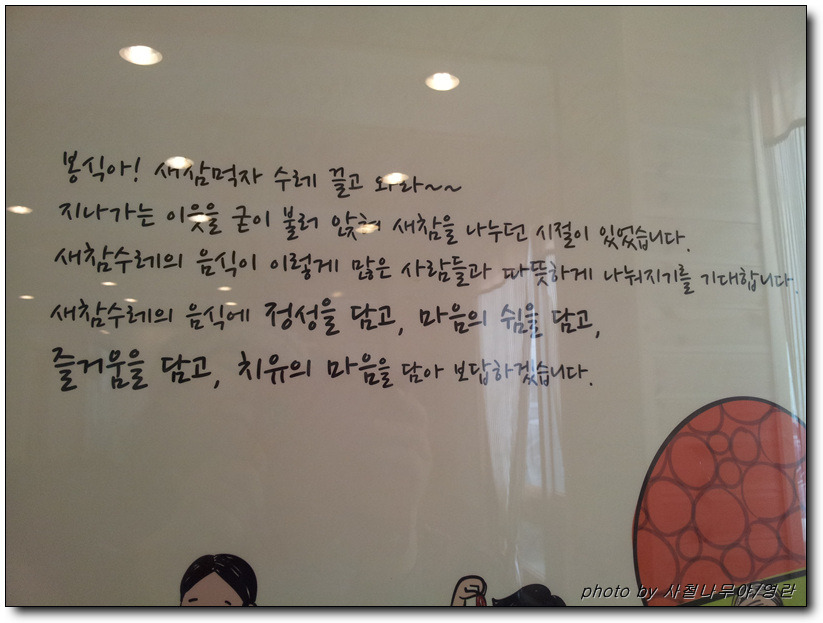 봉식아! 새참먹자 수레 끌고 와라~~
지나가는 이웃을 굳이 불러 앉혀 새참을 나누던 시절이 있었습니다.
새참수레의 음식이 이렇게 많은 사람들과 따뜻하게 나눠지기를 기대합니다.
새참수레의 음식에 정성을 담고, 마음의 쉼을 담고,
즐거움을 담고, 치유의 마음을 담아 보답하겠습니다.
photo by 사철나무야/영란